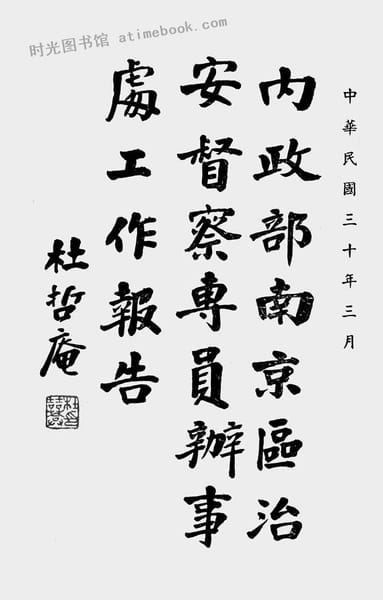 时光图书馆 atimebook.com
中華民國三十年三月
內政部南京區治
安督察專員辦事
處工作報告
杜哲庵